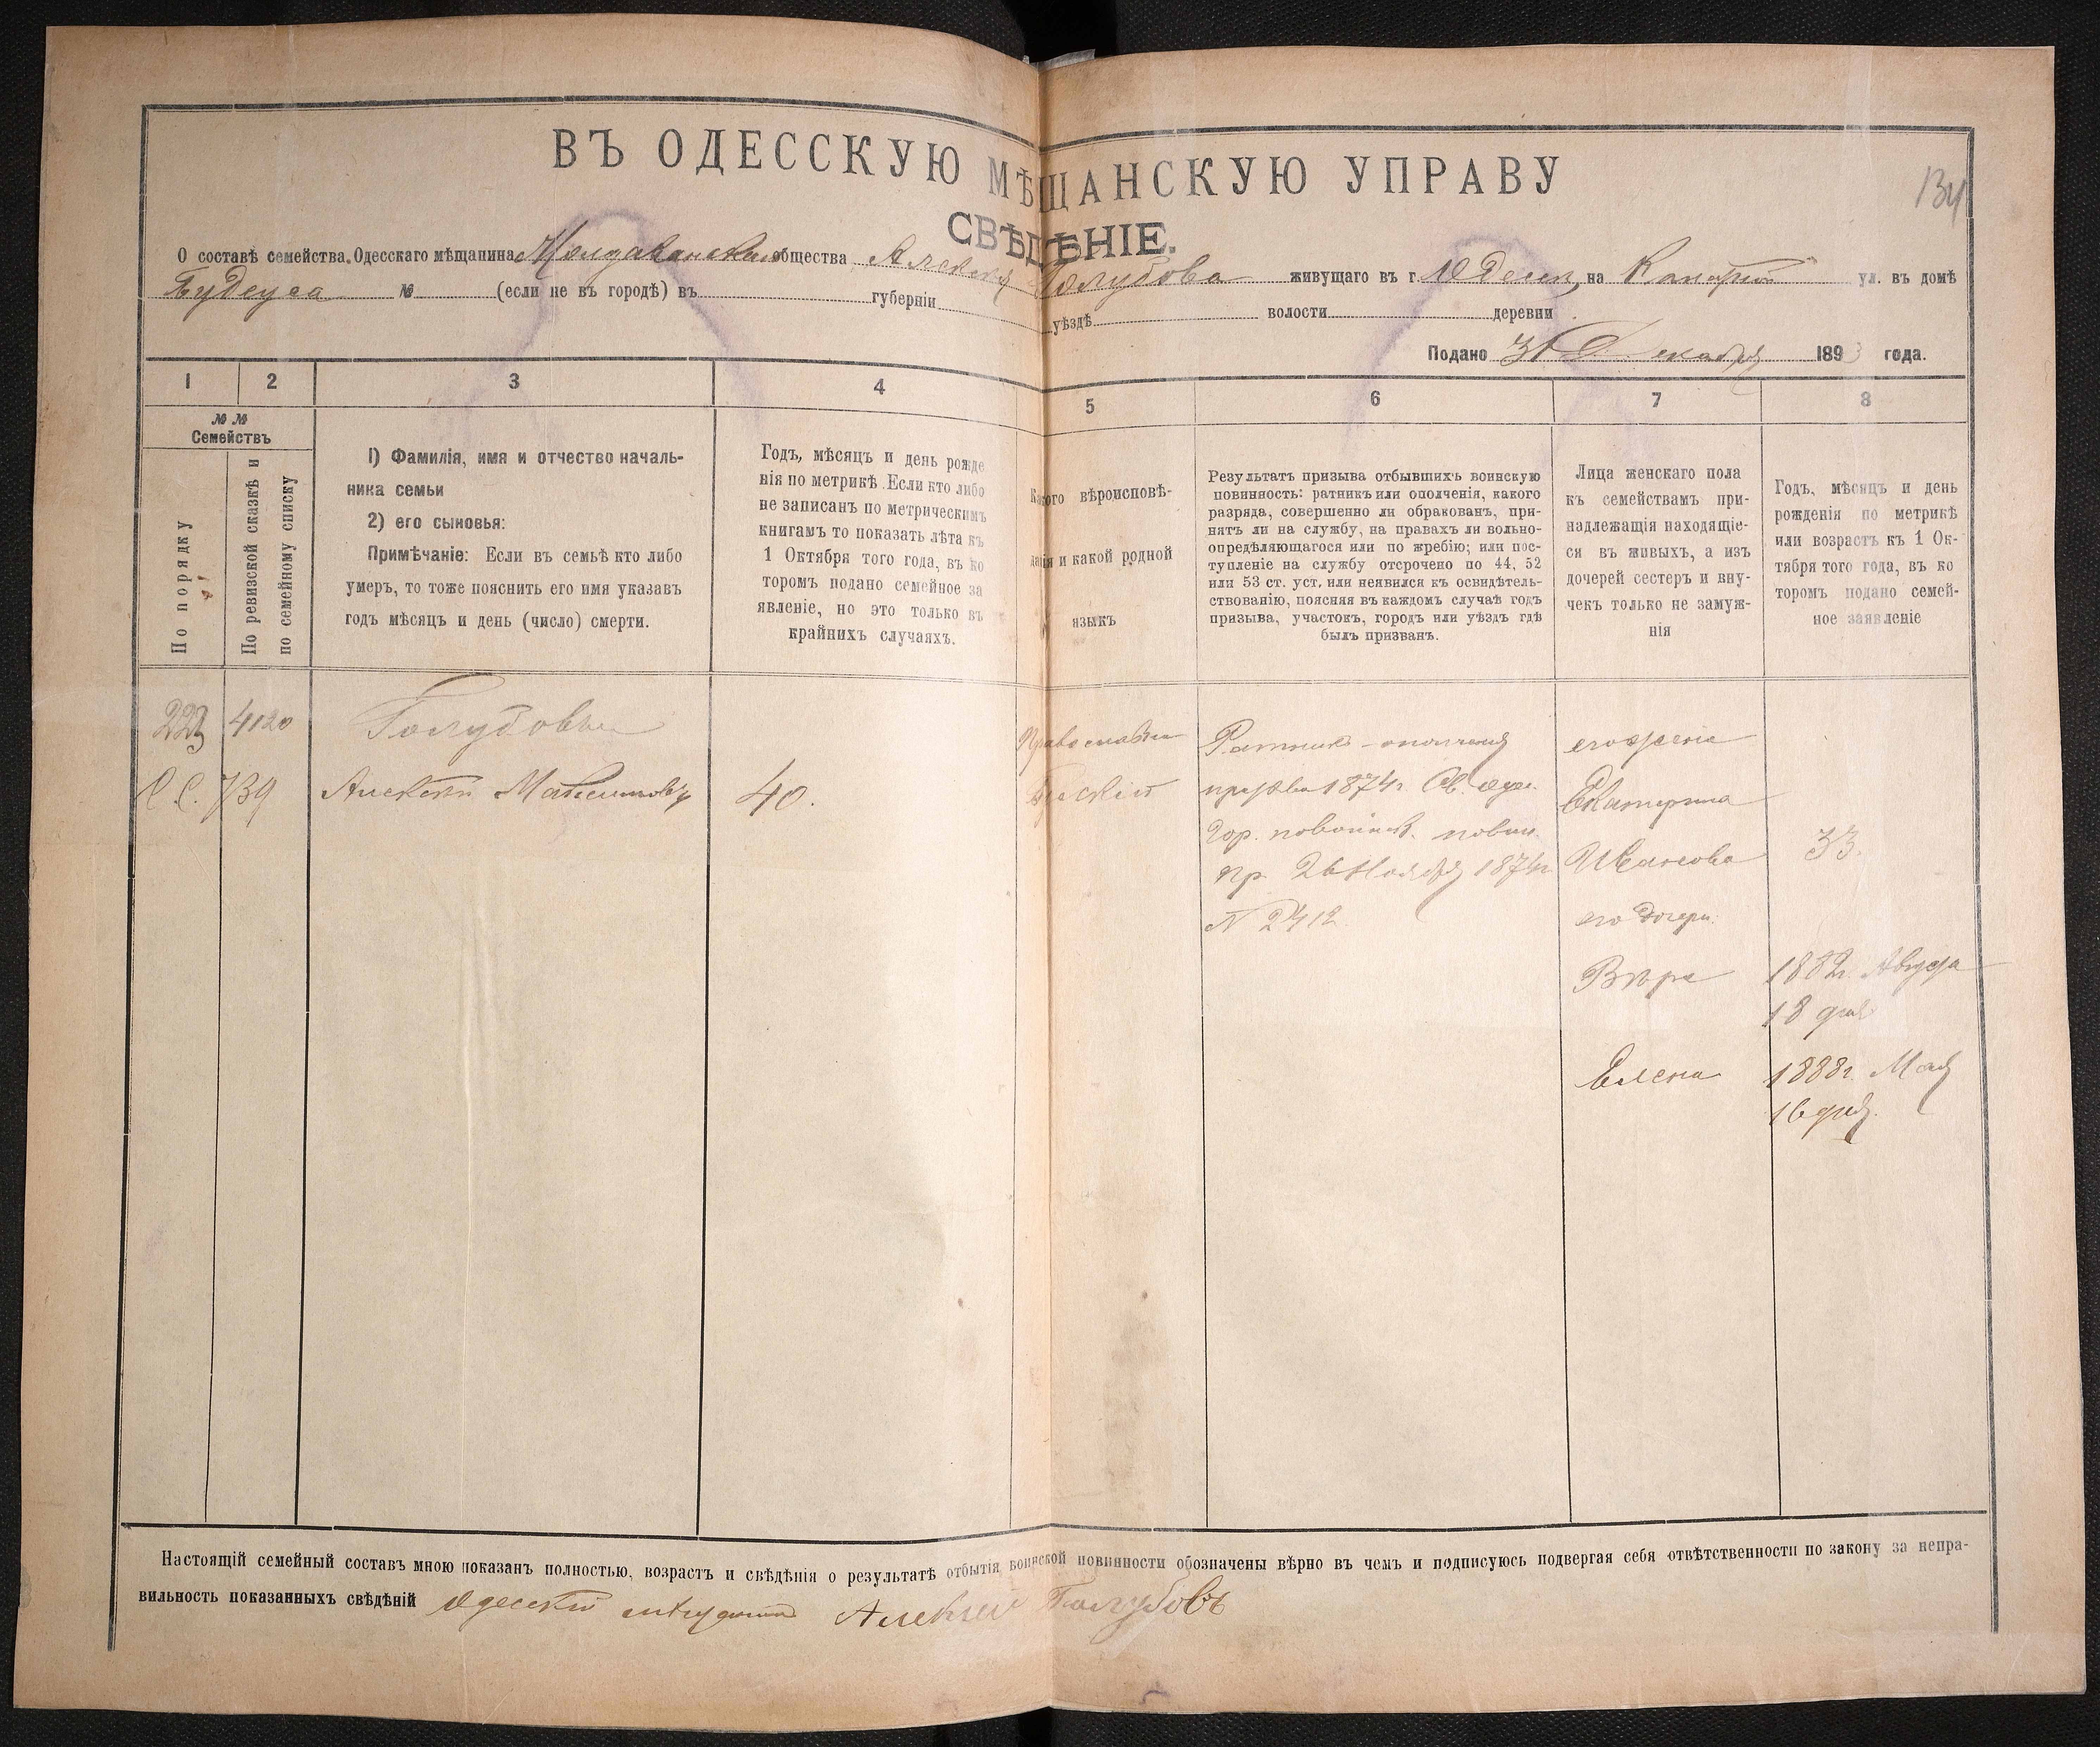 ВЪ ОДЕССКУЮ МѢЩАНСКУЮ УПРАВУ
134
СВѢДѢНІЕ.
О составѣ семейства. Одесскаго мѣщанина Молдаванскаго общества Алексѣя Голубова живущаго въ г. Одессѣ, на ул. въ домѣ
№ (если не въ городѣ) въ губерніи уѣздѣ волости деревни
Подано 31 Декабря 1893 года.
1 2 3 4 5 6 7 8
№ №
Семействъ
По порядку
По ревизской сказкѣ и
по семейному списку
1) Фамилія, имя и отчество началь-
ника семьи
2) его сыновья:
Примѣчаніе: Если въ семьѣ кто либо
умеръ, то тоже пояснить его имя указавъ
годъ мѣсяцъ и день (число) смерти.
Годъ, мѣсяцъ и день рожде
нія по метрикѣ. Если кто либо
не записанъ по метрическимъ
книгамъ то показать лѣта къ
1 Октября того года, въ ко
торомъ подано семейное за
явленіе, но это только въ
крайнихъ случаяхъ.
Какого вѣроисповѣ-
данія и какой родной
языкъ
Результатъ призыва отбывшихъ воинскую
повинность: ратникъ или ополченія, какого
разряда, совершенно ли обракованъ, при-
нятъ ли на службу, на правахъ ли вольно-
опредѣляющагося или по жребію; или пос-
тупленіе на службу отсрочено по 44, 52
или 53 ст. уст. или неявился къ освидѣтель-
ствованію, поясняя въ каждомъ случаѣ годъ
призыва, участокъ, городъ или уѣздъ гдѣ
былъ призванъ.
Лица женскаго пола
къ семействамъ при-
надлежащія находящіе-
ся въ живыхъ, а изъ
дочерей сестеръ и вну-
чекъ только не замуж-
нія
Годъ, мѣсяцъ и день
рожденія по метрикѣ
или возрастъ къ 1 Ок-
тября того года, въ ко
торомъ подано семей-
ное заявленіе
223 4120 Голубовы
739 Алексѣй Максимовъ 40.
Православн
Русскій
Ратникъ ополченія
призыва 1874г Св. Одес.
Гор. повоинск. повин.
пр 26 Ноября 1874г
N 2412
его жена
Екатерина
Иванова 33.
его дочери.
Вѣра 1882г. Августа
18 дня
Елена 1888г. Мая
16 дня.
Настоящій семейный составъ мною показанъ полностью, возрастъ и свѣдѣнія о результатѣ отбытія воинской повинности обозначены вѣрно въ чемъ и подписуюсь подвергая себя отвѣтственности по закону за непра-
вильность показанныхъ свѣдѣній Одесскій Алексѣй Голубовъ